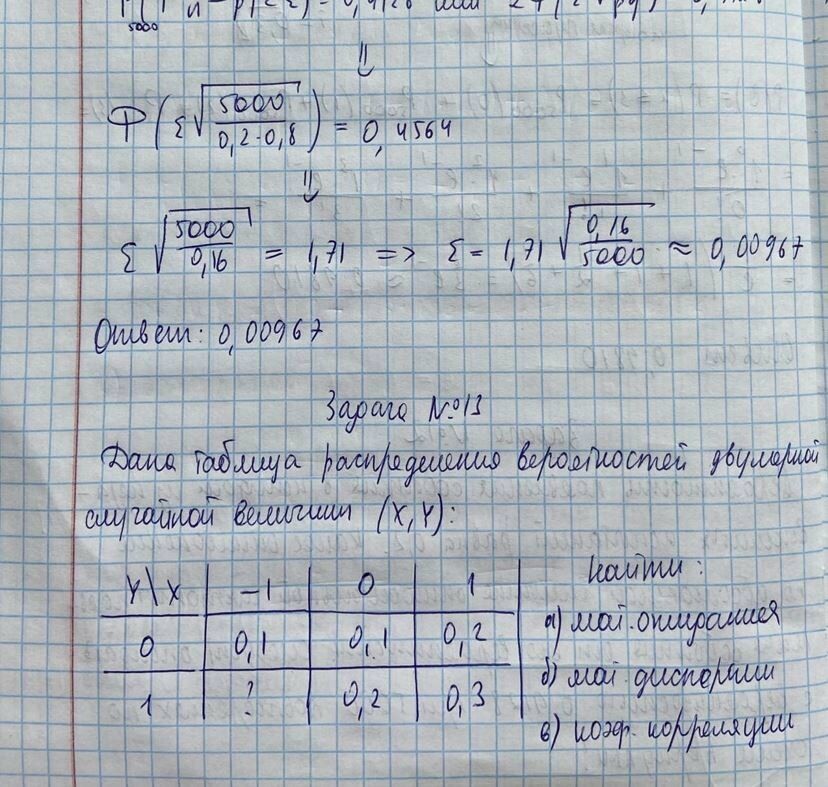 Φ(ε√(5000/(0,2·0,8))) = 0,4564
⇓
ε√(5000/0,16) = 1,71 => ε = 1,71√(0,16/5000) ≈ 0,00967
Ответ: 0,00967
Задача №13
Дана таблица распределения вероятностей двумерной
случайной величин (X,Y):
Y\X -1 0 1
0 0,1 0,1 0,2
1 ? 0,2 0,3
Найти:
а) мат. ожидания
б) мат дисперсии
в) коэф. корреляции